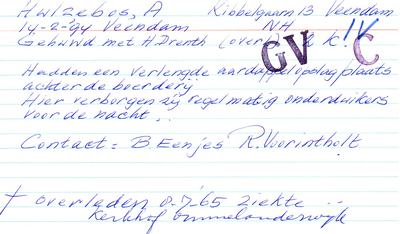 Hulzebos, A Kibbelgaarn 13 Veendam
14-2-'94 Veendam NH
Gehuwd met H. Drenth (over) 2 k. IV
GV C
Hadden een verlengde aardappelopslagplaats
achter de boerderij
Hier verborgen zij regelmatig onderduikers
voor de nacht..
Contact = B. Eenjes R. Voorintholt
† overleden 8-7-'65 ziekte ..
Kerkhof Ommelanderwijk